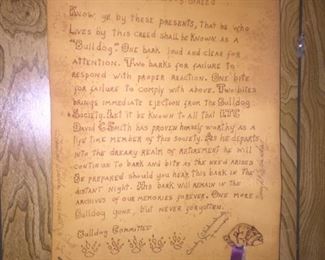 Know ye by these presents, that he who
lives by this creed shall be known as a
"Bulldog". One bark loud and clear for
attention. Two barks for failure to
respond with proper reaction. One bite
for failure to comply with above. Two bites
brings immediate ejection from the Bulldog
Society. Let it be known to all that LTC
David E. Smith has proven himself worthy as a
life time member of this society. As he departs
into the dreary realm of retirement he will
continue to bark and bite as the need arises
Be prepared should you hear this bark in the
distant night. This bark will remain in the
archives of our memories forever. One more
Bulldog gone, but never forgotten.
Bulldog Committee